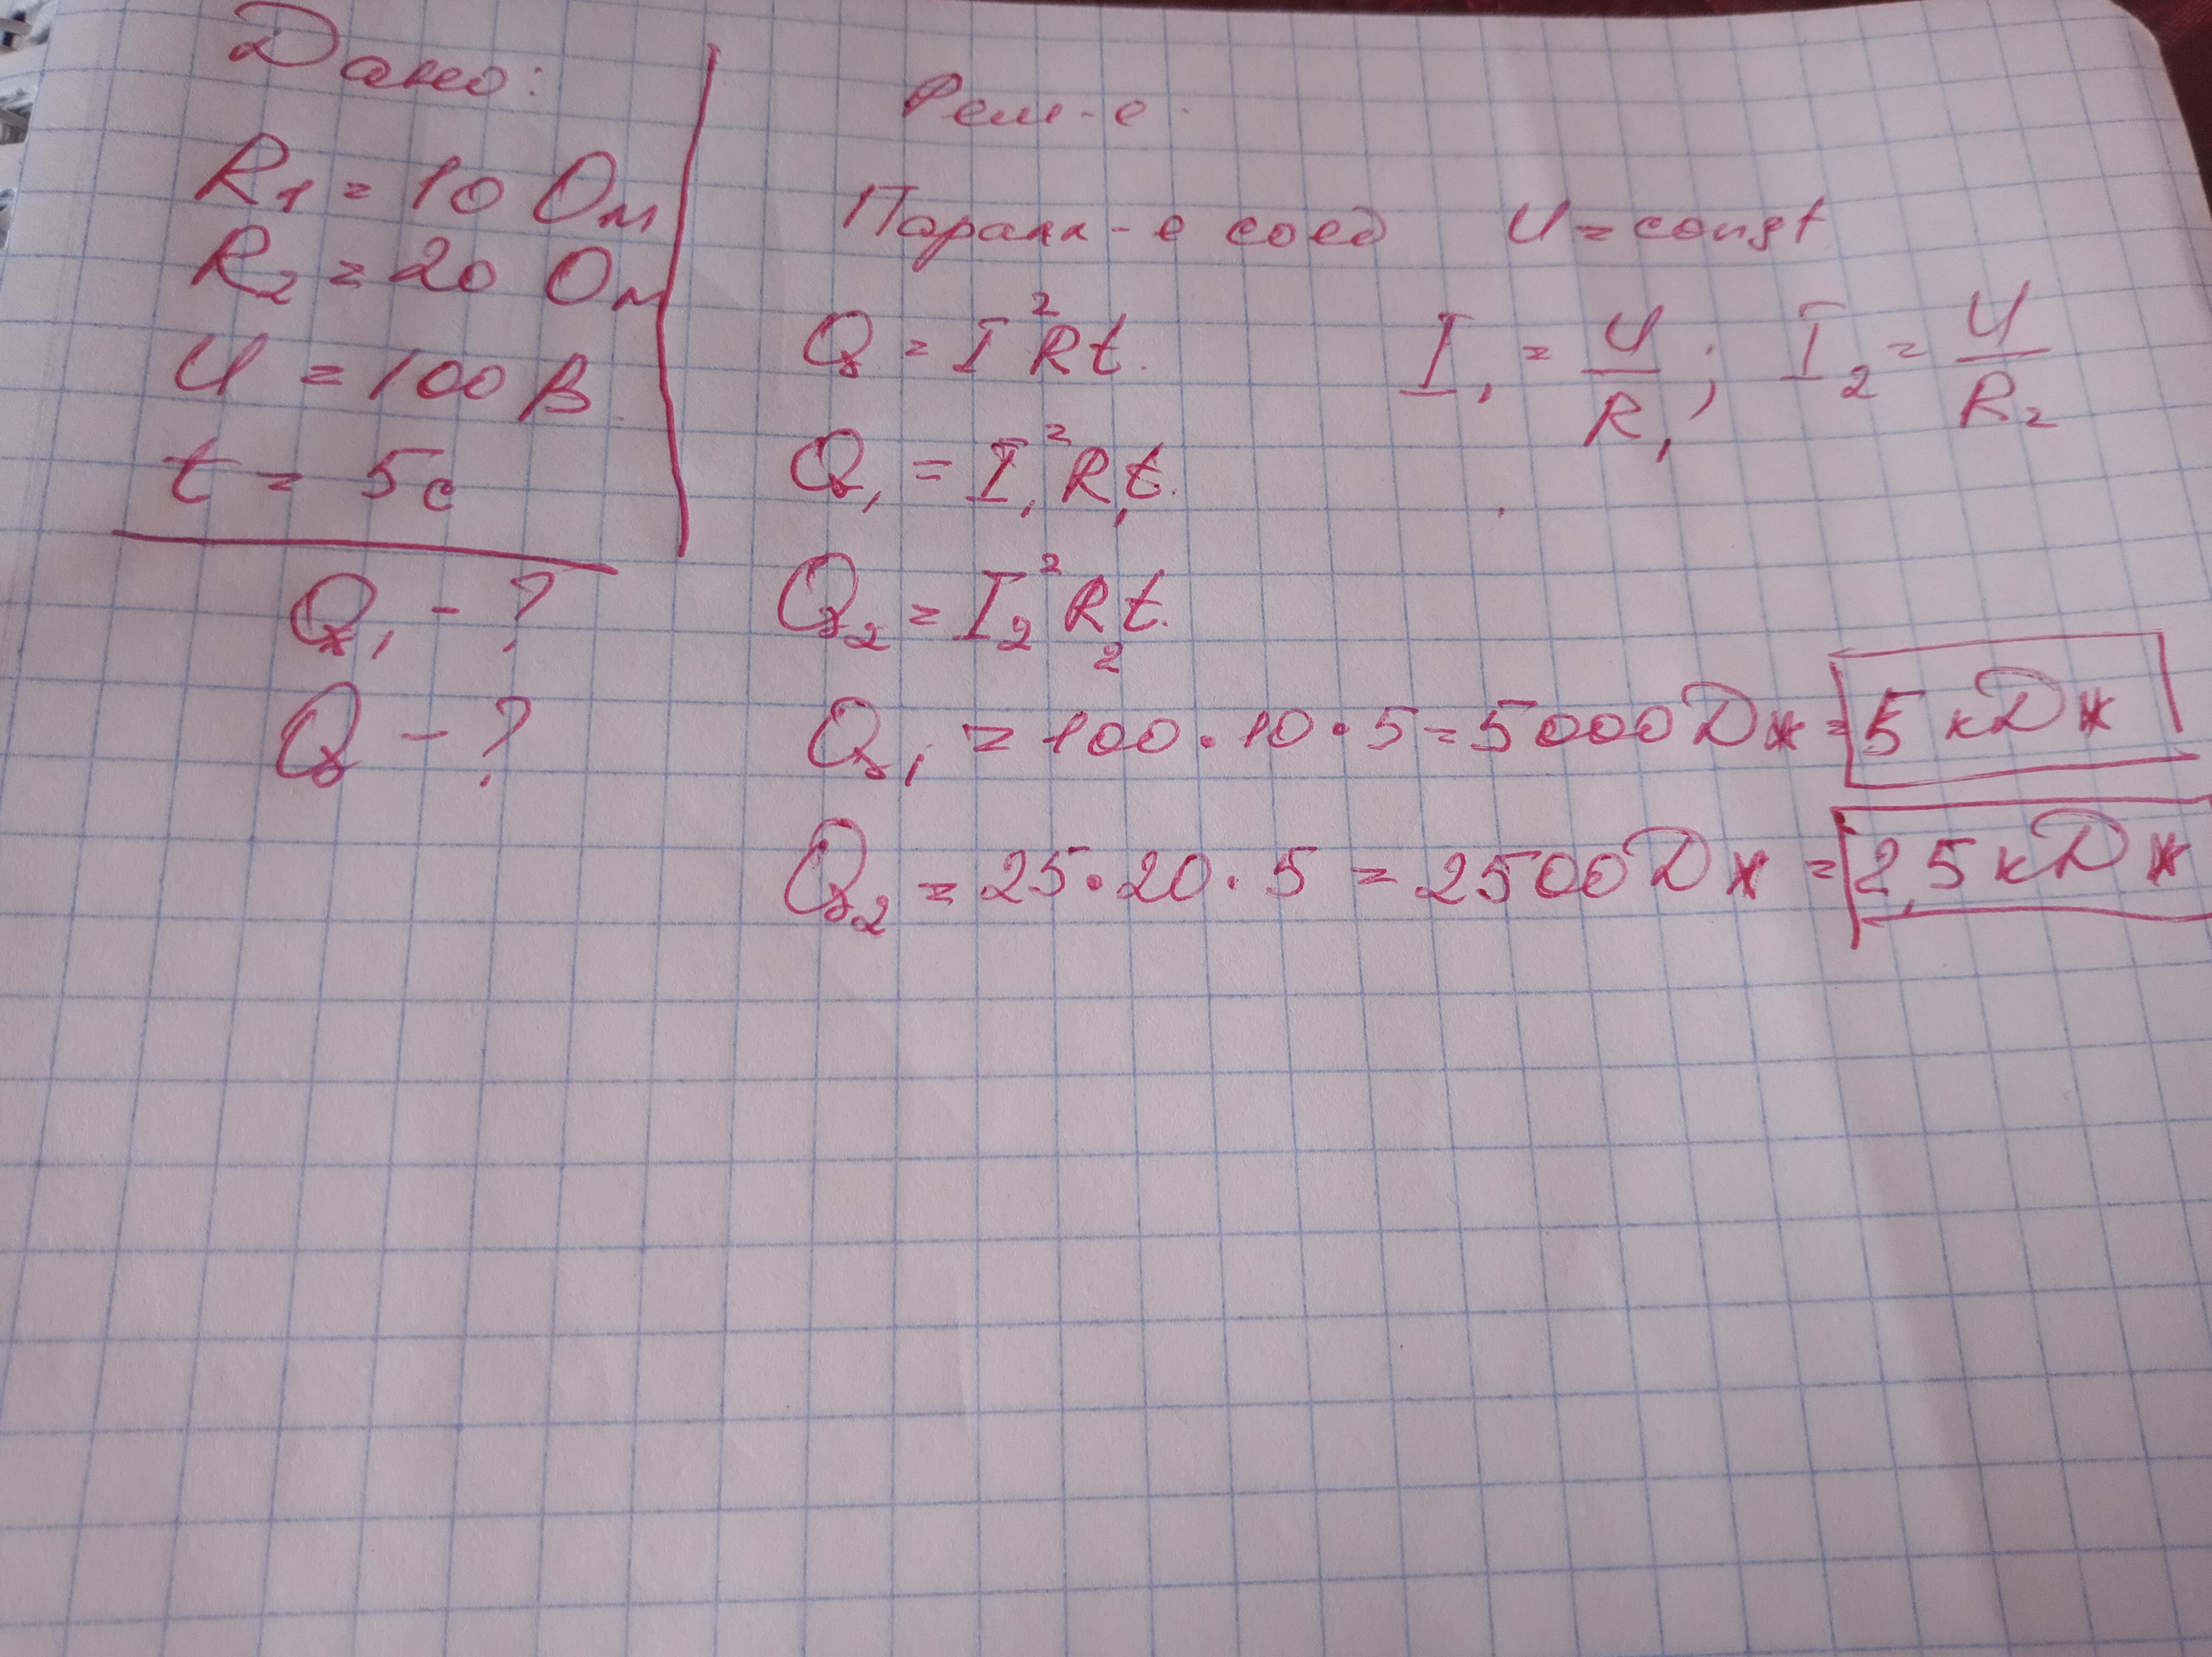 Дано:
R₁ = 10 Ом
R₂ = 20 Ом
U = 100 В
t = 5с
Q₁ - ?
Q - ?
Реш-е.
Паралл-е соед U = const
Q = I²Rt. I₁ = U/R₁; I₂ = U/R₂
Q₁ = I₁²R₁t.
Q₂ = I₂²R₂t.
Q₁ = 100·10·5=5000Дж=5 кДж
Q₂ = 25·20·5 = 2500Дж = 2,5 кДж